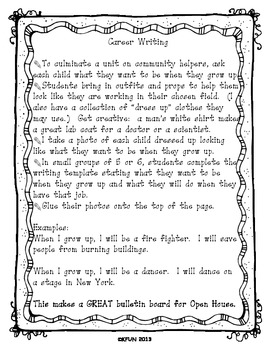 Career Writing
To culminate a unit on community helpers, ask
each child what they want to be when they grow up.
Students bring in outfits and props to help them
look like they are working in their chosen field. (I
also have a collection of "dress up" clothes they
may use.) Get creative: a man's white shirt makes
a great lab coat for a doctor or a scientist.
I take a photo of each child dressed up looking
like what they want to be when they grow up.
In small groups of 5 or 6, students complete the
writing template stating what they want to be
when they grow up and what they will do when they
have that job.
Glue their photos onto the top of the page.
Examples:
When I grow up, I will be a fire fighter. I will save
people from burning buildings.
When I grow up, I will be a dancer. I will dance on
a stage in New York.
This makes a GREAT bulletin board for Open House.
©KFUN 2013